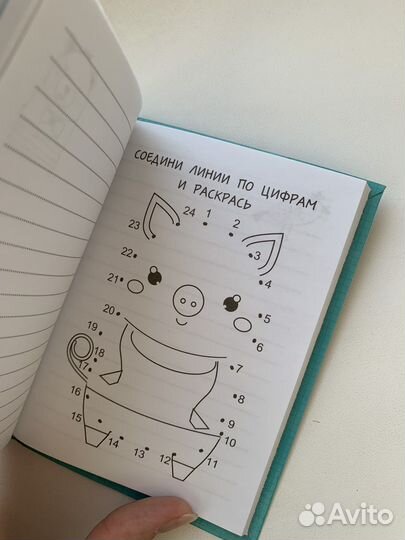 СОЕДИНИ ЛИНИИ ПО ЦИФРАМ
И РАСКРАСЬ
24 1 2
23
3
22
4
21
5
20
6
19
18
17
7
16
8
15
9
14 13 12 11 10
Avito